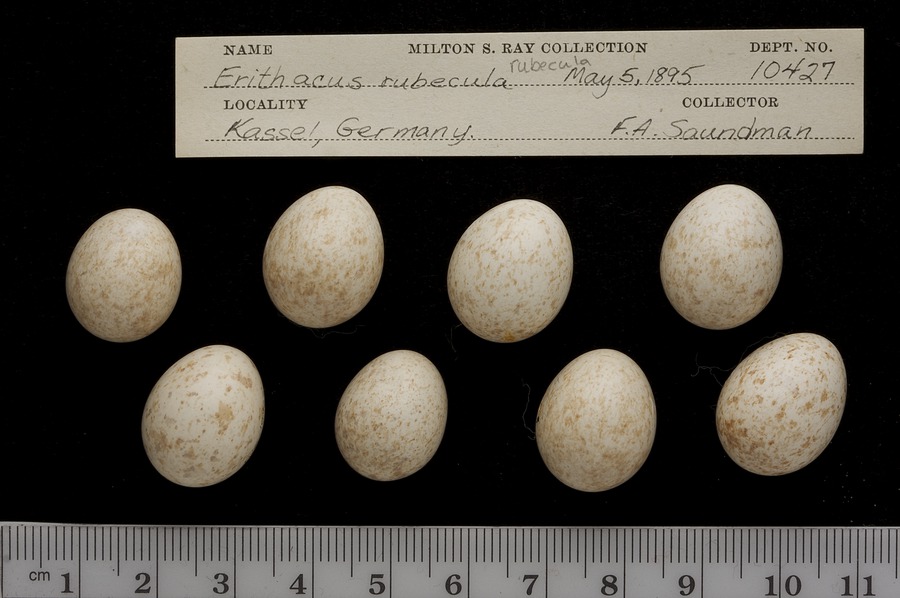 NAME MILTON S. RAY COLLECTION DEPT. NO.
Erithacus rubecula rubecula May 5, 1895 10427
LOCALITY COLLECTOR
Kassel, Germany. F.A. Saundman
cm 1 2 3 4 5 6 7 8 9 10 11